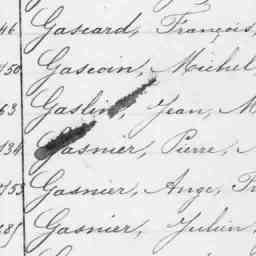 46 Gascard, François,
150 Gascoin, Michel
63 Gaslin, Jean, M
134 Gasnier, Pierre,
153 Gasnier, Ange, Fr
285 Gasnier, Julien,